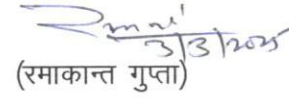 3/3/2025
(रमाकान्त गुप्ता)